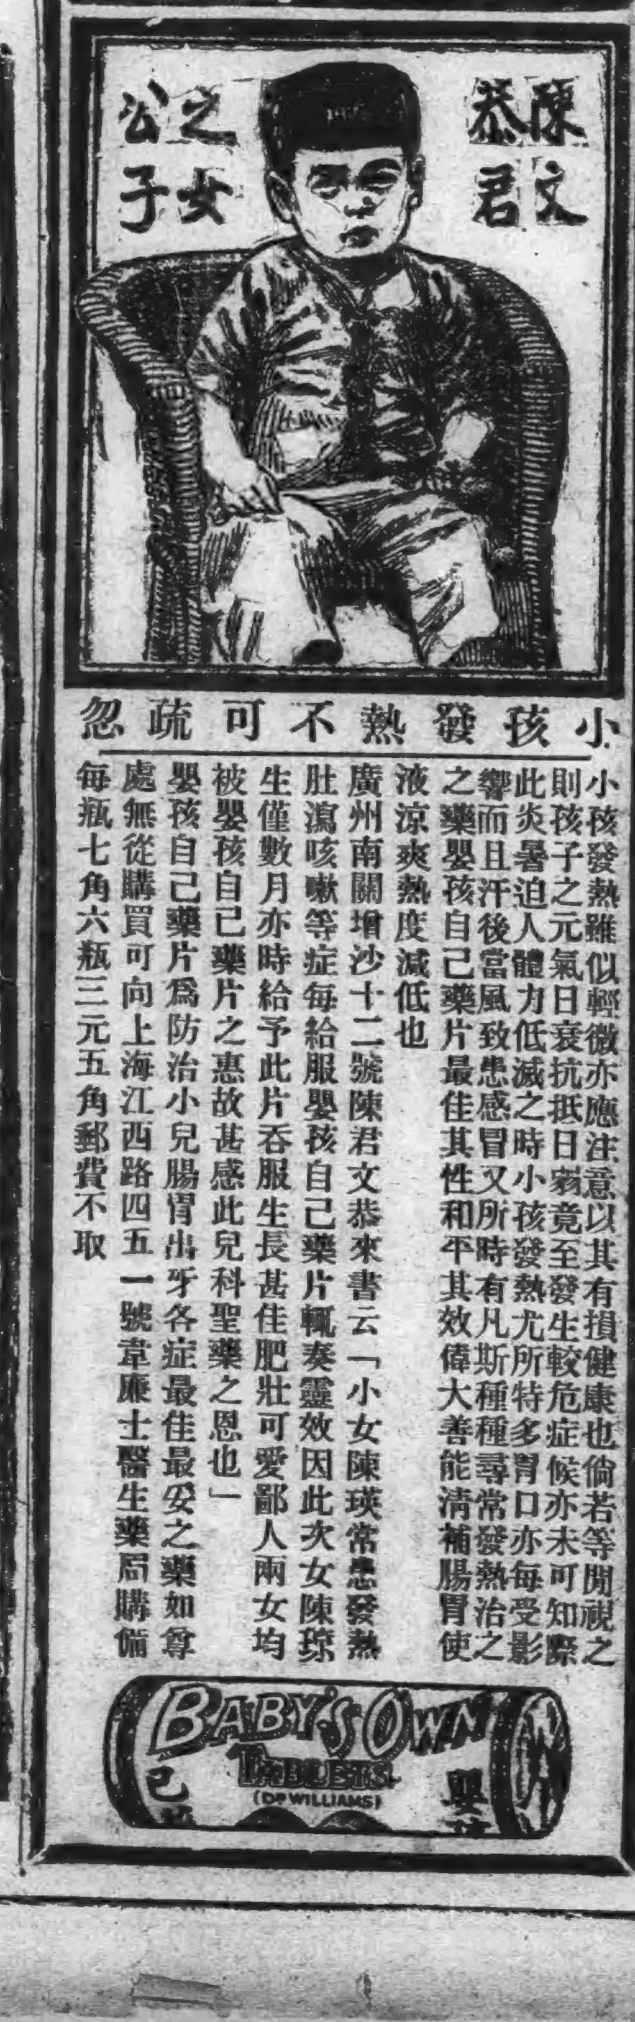 陳文
恭君
之女
公子
小孩發熱不可疏忽
小孩發熱雖似輕微亦應注意以其有損健康也倘若等閒視之
則孩子之元氣日衰抗抵日弱竟至發生較危症候亦未可知際
此炎暑迫人體力低減之時小孩發熱尤所特多胃口亦每受影
響而且汗後當風致患感冒又所時有凡斯種種尋常發熱治之
之藥嬰孩自己藥片最佳其性和平其效偉大善能清補腸胃使
液涼爽熱度減低也
廣州南關增沙十二號陳君文恭來書云「小女陳瑛常患發熱
肚瀉咳嗽等症每給服嬰孩自己藥片輒奏靈效因此次女陳琼
生僅數月亦時給予此片吞服生長甚佳肥壯可愛鄙人兩女均
被嬰孩自己藥片之惠故甚感此兒科聖藥之恩也」
嬰孩自己藥片爲防治小兒腸胃出牙各症最佳最妥之藥如尊
處無從購買可向上海江西路四五一號韋廉士醫生藥局購備
每瓶七角六瓶三元五角郵費不取
BABY'S OWN
TABLETS
(DR WILLIAMS)
嬰
己